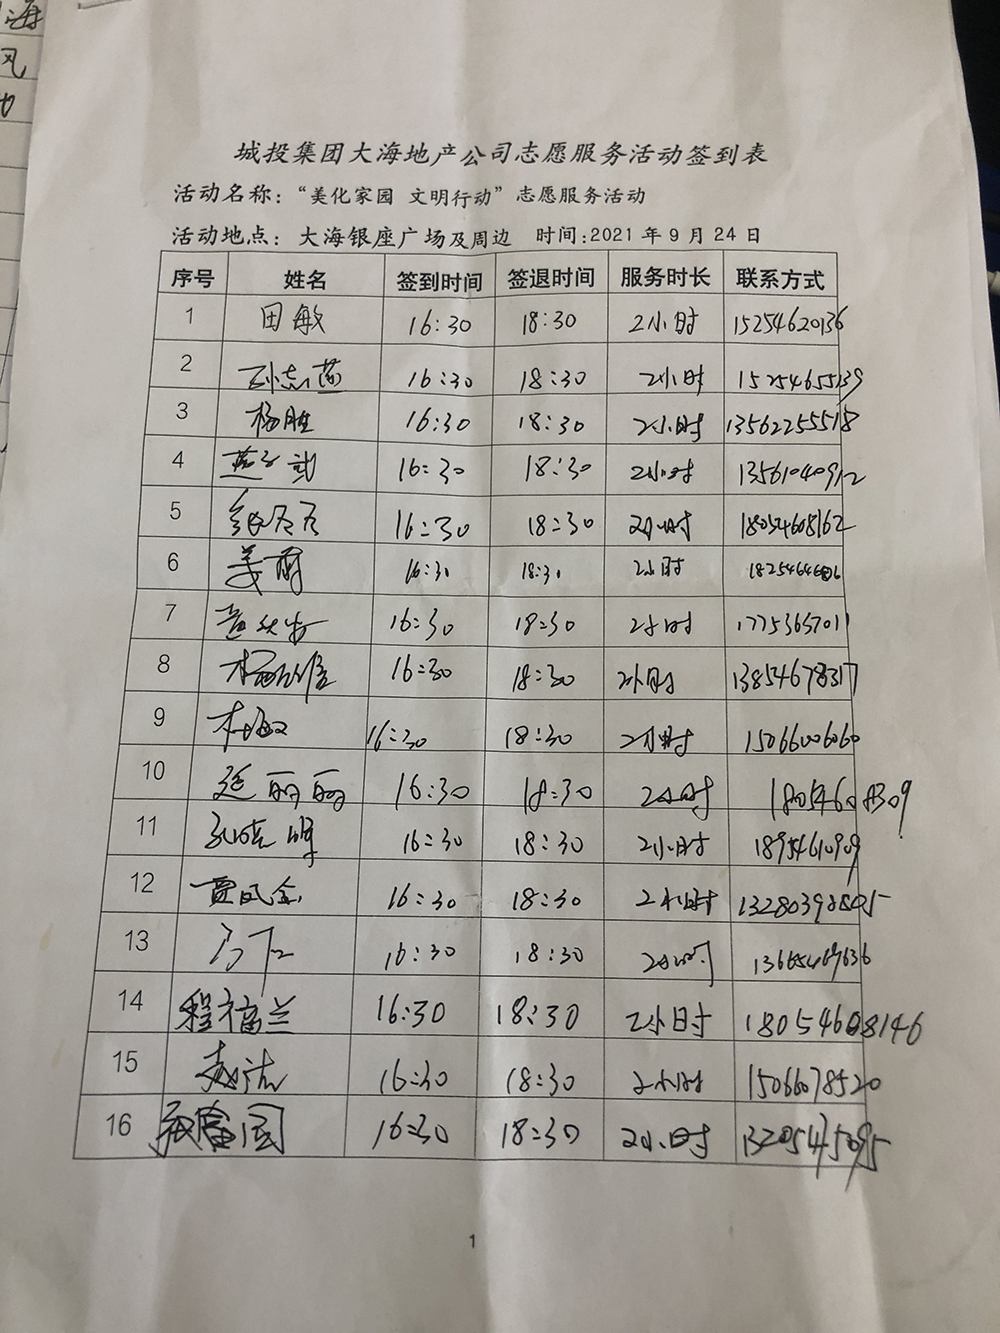 海
风
城投集团大海地产公司志愿服务活动签到表
活动名称：“美化家园 文明行动”志愿服务活动
活动地点：大海银座广场及周边 时间:2021 年 9 月 24 日
序号 姓名 签到时间 签退时间 服务时长 联系方式
1 田敏 16:30 18:30 2小时 15254620136
2 16:30 18:30 2小时 15254655139
3 杨胜 16:30 18:30 2小时 13562255518
4 16:30 18:30 2小时 13561040912
5 16:30 18:30 2小时 18054608162
6 姜丽 16:30 18:30 2小时
7 16:30 18:30 2小时 17753657011
8 16:30 18:30 2小时 13854678317
9 16:30 18:30 2小时 15066006060
10 延丽丽 16:30 18:30 2小时 18054608309
11 孔晓明 16:30 18:30 2小时 18954610909
12 贾风金 16:30 18:30 2小时
13 16:30 18:30 2小时
14 程福兰 16:30 18:30 2小时 18054608146
15 赵洁 16:30 18:30 2小时 15066078520
16 16:30 18:30 2小时
1